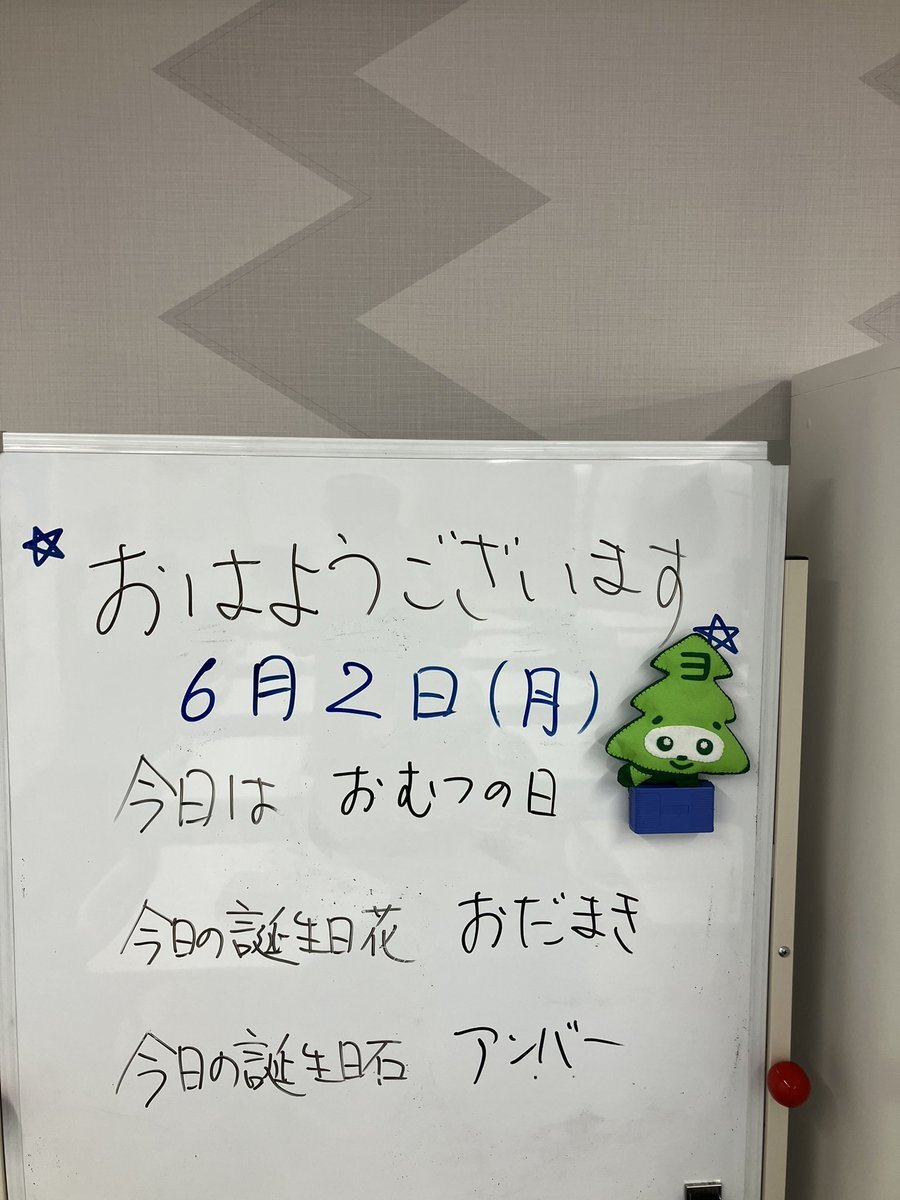 おはようございます
6月2日(月)
ヨ
今日は おむつの日
今日の誕生日花 おだまき
今日の誕生日石 アンバー